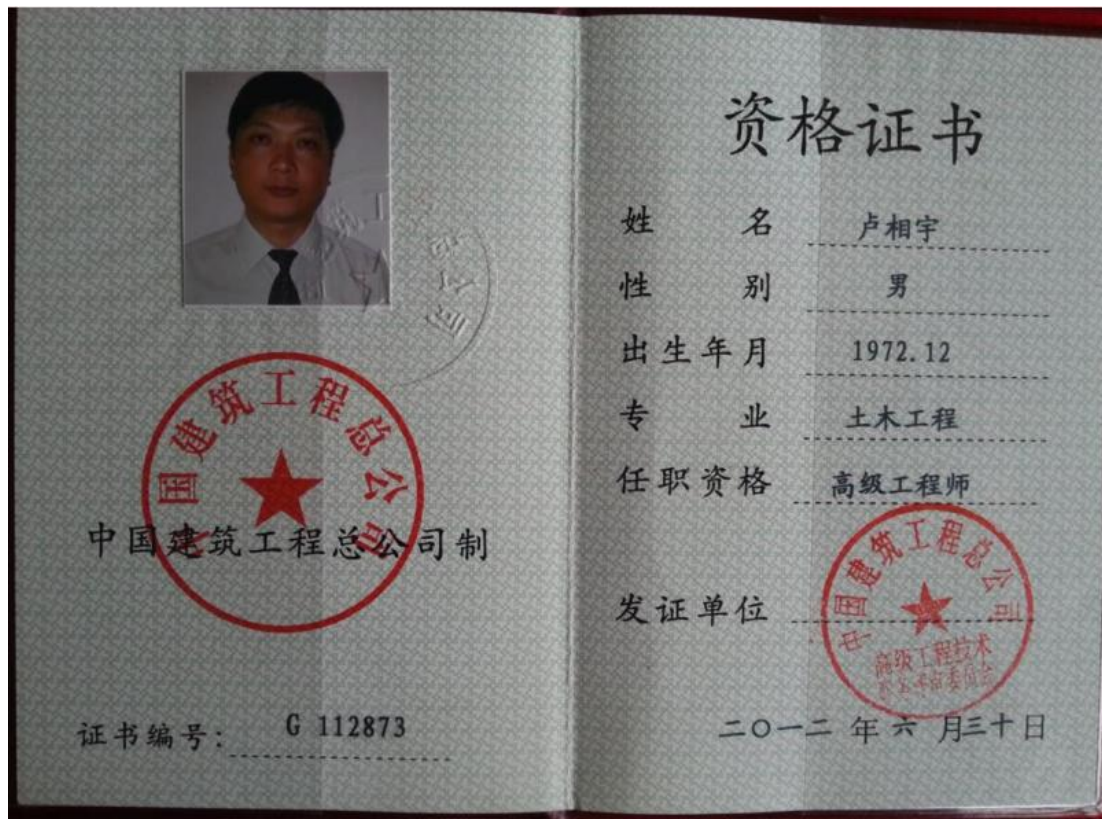 中国建筑工程总公司
中国建筑工程总公司制
证书编号: G 112873
资格证书
姓 名 卢相宇
性 别 男
出生年月 1972.12
专 业 土木工程
任职资格 高级工程师
发证单位
中国建筑工程总公司
高级工程技术
二〇一二 年 六 月三十日